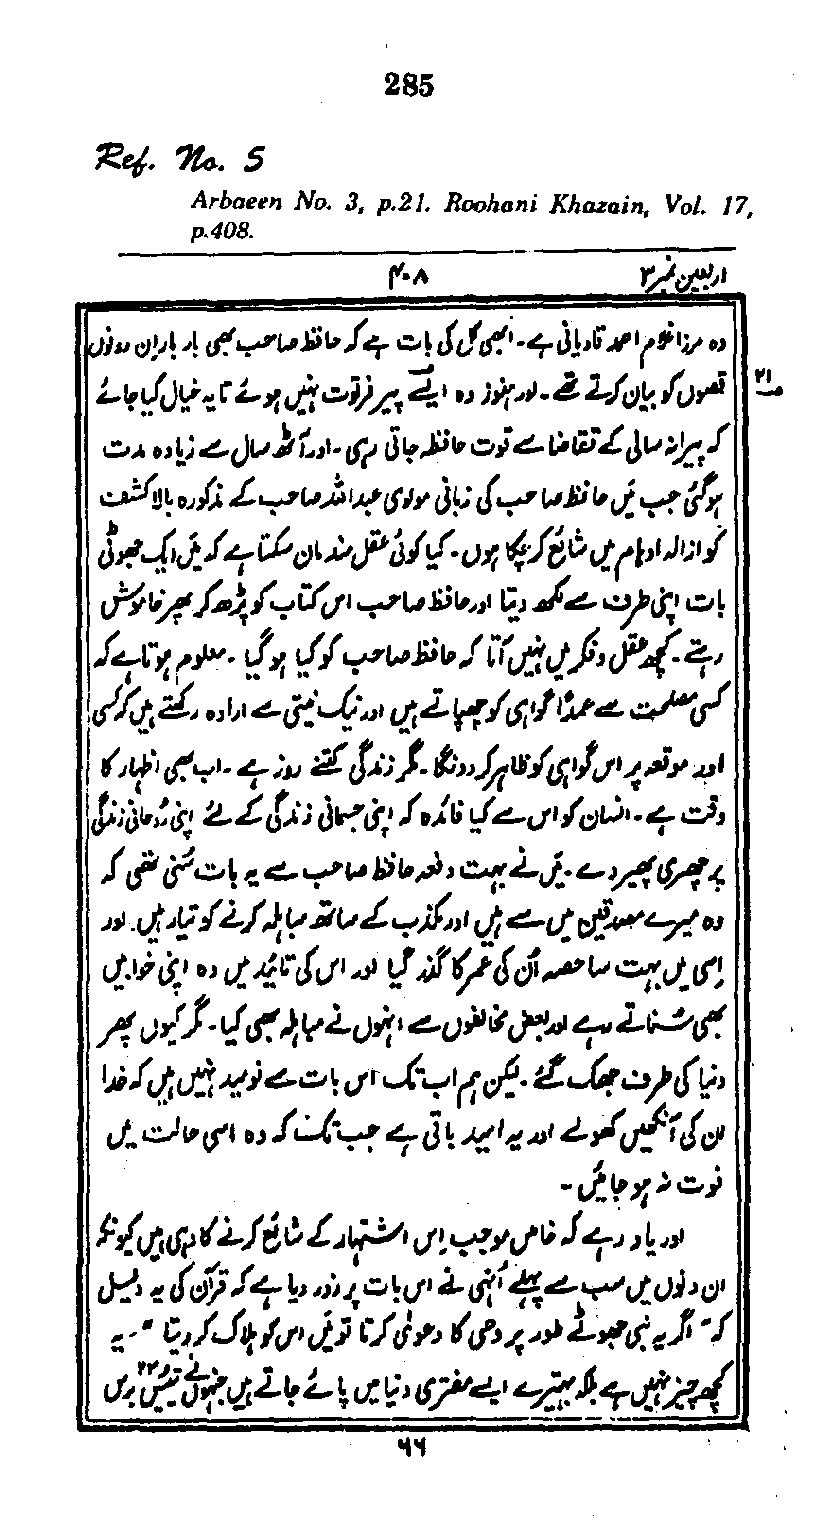 285
Ref. No. 5
Arbaeen No. 3, p.21. Roohani Khazain, Vol. 17,
p.408.
اربعین نمبر۳
۴۰۸
وہ مرزا غلام احمد قادیانی ہے۔ ابھی کل کی بات ہے کہ حافظ صاحب بھی بار بار ان دونوں
قصوں کو بیان کرتے تھے۔ اور ہنوز وہ ایسے پیر فرتوت نہیں ہوئے تا یہ خیال کیا جائے
ص۲۱
کہ پیرانہ سالی کے تقاضا سے قوت حافظہ جاتی رہی۔ اور آٹھ سال سے زیادہ مدت
ہو گئی جب میں حافظ صاحب کی زبانی مولوی عبداللہ صاحب کے مذکورہ بالا کشف
کو ازالہ اوہام میں شائع کر چکا ہوں۔ کیا کوئی عقلمند مان سکتا ہے کہ میں ایک جھوٹی
بات اپنی طرف سے لکھ دیتا اور حافظ صاحب اس کتاب کو پڑھ کر پھر خاموش
رہتے۔ کچھ عقل و فکر میں نہیں آتا کہ حافظ صاحب کو کیا ہو گیا۔ معلوم ہوتا ہے کہ
کسی مصلحت سے عمداً گواہی کو چھپاتے ہیں اور نیک نیتی سے ارادہ رکھتے ہیں کہ کسی
اور موقعہ پر اس گواہی کو ظاہر کر دونگا۔ مگر زندگی کتنے روز ہے۔ اب بھی اظہار کا
وقت ہے۔ انسان کو اس سے کیا فائدہ کہ اپنی جسمانی زندگی کے لئے اپنی روحانی زندگی
پر چھری پھیر دے۔ میں نے بہت دفعہ حافظ صاحب سے یہ بات سُنی تھی کہ
وہ میرے مصدقین میں سے ہیں اور مکذب کے ساتھ مباہلہ کرنے کو تیار ہیں۔ اور
اِسی میں بہت سا حصہ اُن کی عمر کا گذر گیا اور اس کی تائید میں وہ اپنی خوابیں
بھی سُناتے رہے اور بعض مخالفوں سے انہوں نے مباہلہ بھی کیا۔ مگر کیوں پھر
دنیا کی طرف جھک گئے۔ لیکن ہم اب تک اس بات سے نومید نہیں ہیں کہ خدا
ان کی آنکھیں کھولے اور یہ امید باقی ہے جب تک کہ وہ اسی حالت میں
فوت نہ ہو جائیں۔
اور یاد رہے کہ خاص موجب اِس اشتہار کے شائع کرنے کا وہی ہیں کیونکہ
ان دنوں میں سب سے پہلے اُنہی نے اس بات پر زور دیا ہے کہ قرآن کی یہ دلیل
کہ "اگر یہ نبی جھوٹے طور پر وحی کا دعویٰ کرتا تو میں اس کو ہلاک کر دیتا"۔ یہ
کچھ چیز نہیں ہے بلکہ بہتیرے ایسے مفتری دنیا میں پائے جاتے ہیں جنہوں نے تیئیس۲۳ برس
۶۶